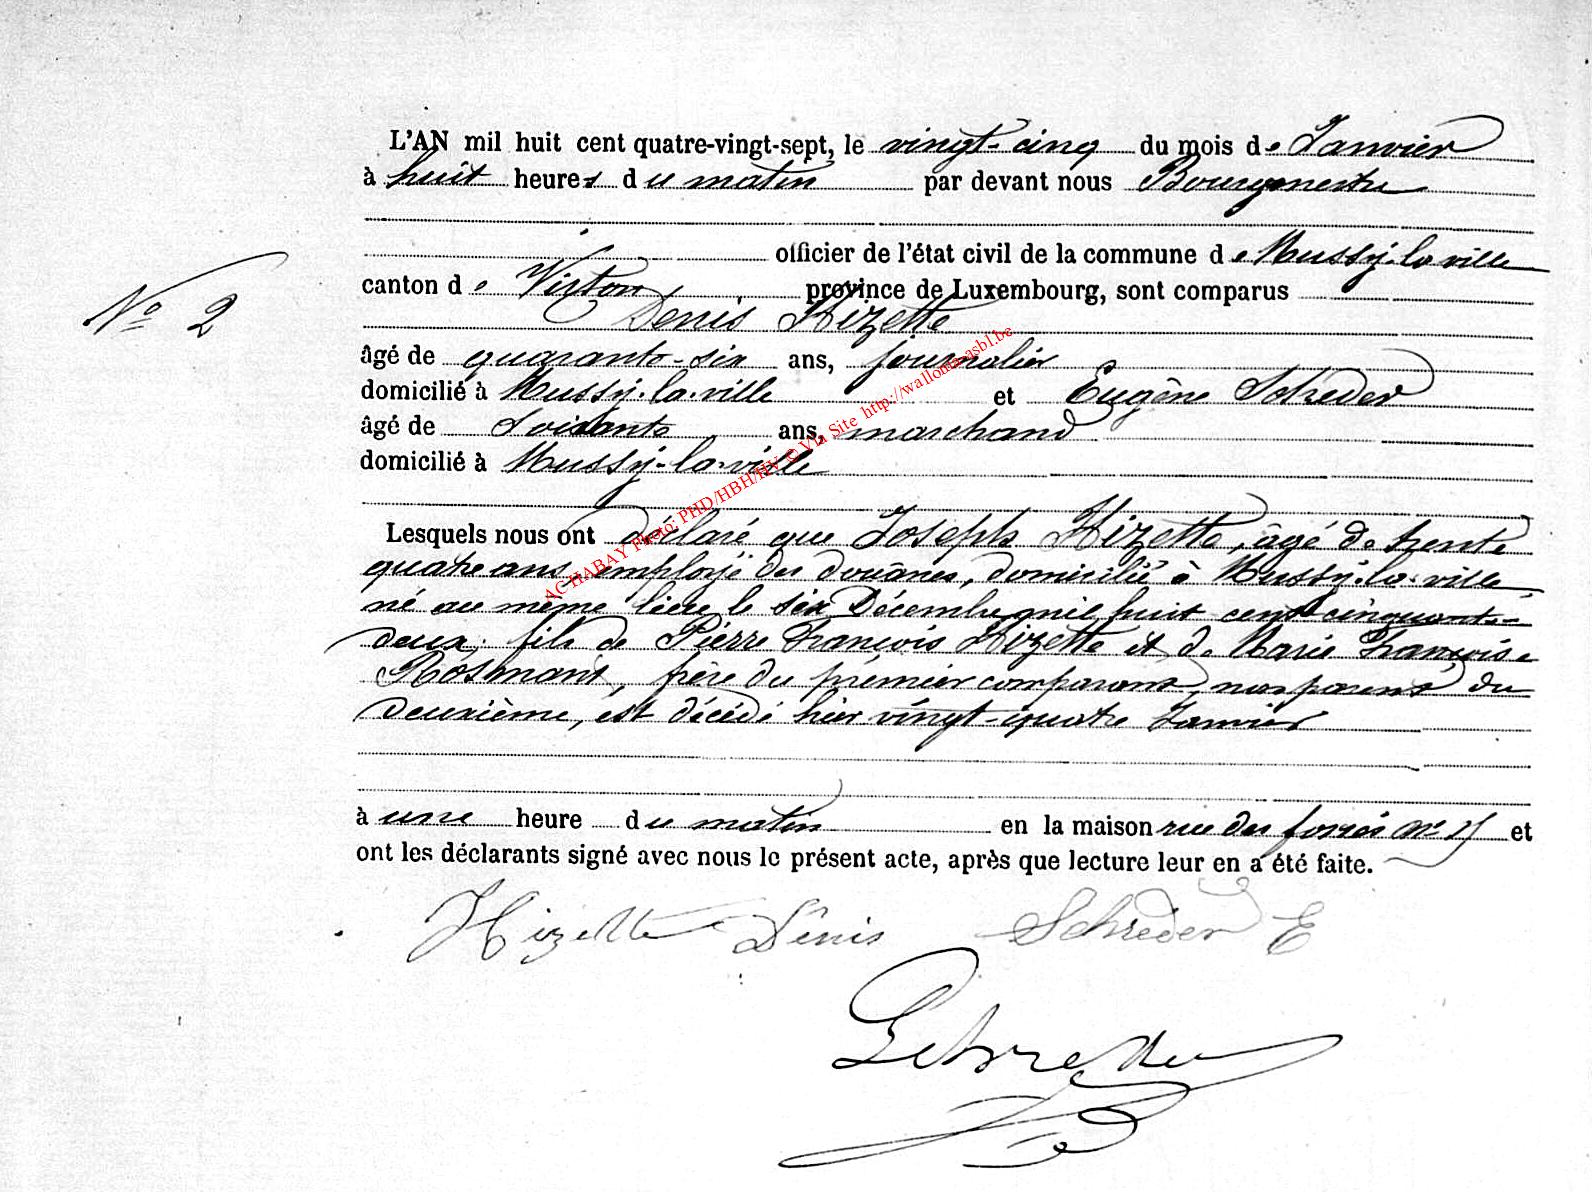 L'AN mil huit cent quatre-vingt-sept, le vingt-cinq du mois de Janvier
à huit heures du matin par devant nous Bourgmestre
officier de l'état civil de la commune de Mussy-la-ville
N° 2
canton de Virton province de Luxembourg, sont comparus
Denis Hizette
âgé de quarante-six ans, journalier
domicilié à Mussy-la-ville et Eugène Schréder
âgé de Soixante ans, marchand
domicilié à Mussy-la-ville
AC HABAY Photo: PHD/HBH/HV © Via Site http://wallonia-asbl.be
Lesquels nous ont déclaré que Joseph Hizette, âgé de trente
quatre ans, employé des douanes, domicilié à Mussy-la-ville,
né au même lieu le six Décembre mil huit cent cinquante-
deux, fils de Pierre François Hizette et de Marie Françoise
Rosmant, frère du prémier comparant, non parent du
deuxième, est décédé hier vingt-quatre Janvier
à une heure du matin en la maison rue des fossés n° et
ont les déclarants signé avec nous le présent acte, après que lecture leur en a été faite.
Hizette Dénis Schréder E